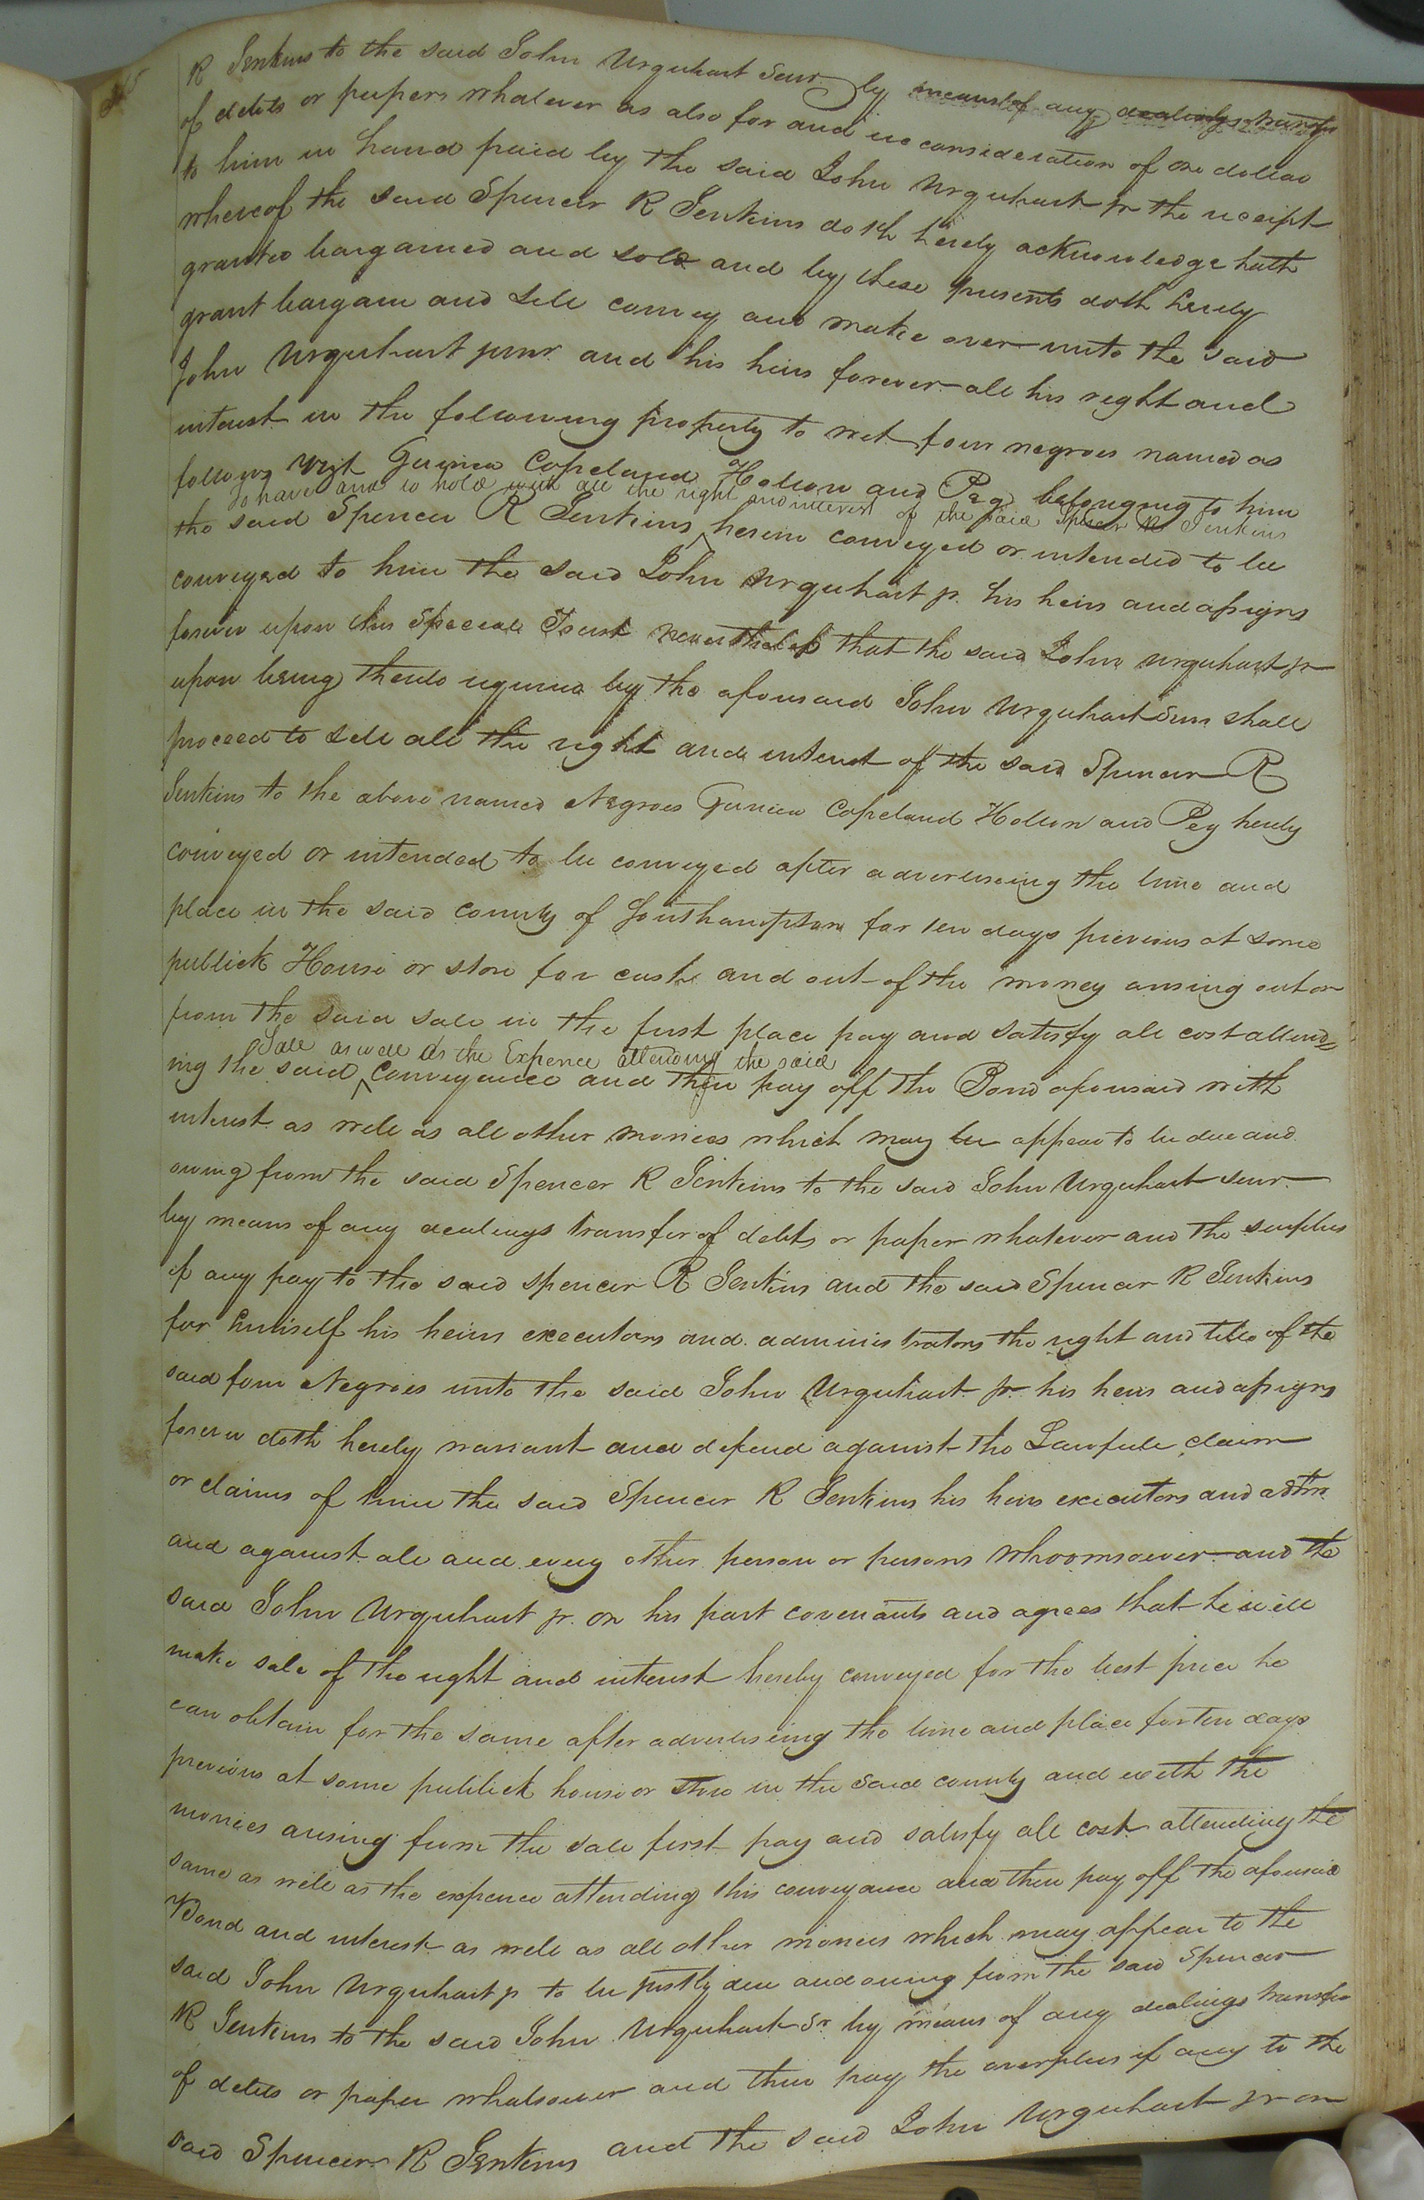 R Jenkins to the said John Urquhart Senr by means of any dealings transfer
of debts or papers whatever as also for and in consideration of one dollar
to him in hand paid by the said John Urquhart jr the receipt
whereof the said Spencer R Jenkins doth hereby acknowledge hath
granted bargained and sold and by these presents doth hereby
grant bargain and sell convey and make over unto the said
John Urquhart junr and his heirs forever all his right and
interest in the following property to wit four negroes named as
follows Vizt Guinea Copeland Holton and Peg belonging to him
To have and to hold with all the right and interest of the said Spencer R Jenkins
the said Spencer R Jenkins ^ herein conveyed or intended to be
conveyed to him the said John Urquhart jr. his heirs and assigns
forever upon this Special Trust nevertheless that the said John Urquhart jr
upon being thereto required by the aforesaid John Urquhart Senr shall
proceed to sell all the right and interest of the said Spencer R
Jenkins to the above named Negroes Guinea Copeland Holton and Peg hereby
conveyed or intended to be conveyed after advertiseing the time and
place in the said county of Southampton for ten days previous at some
publick House or store for cash and out of the money arising out or
from the said sale in the first place pay and satisfy all cost attend=
Sale as well as the Expence attending the said
ing the said ^ conveyance and then pay off the Bond aforesaid with
interest as well as all other monies which may be appear to be due and
owing from the said Spencer R Jenkins to the said John Urquhart senr.
by means of any dealings transfer of debts or paper whatever and the surplus
if any pay to the said Spencer R Jenkins and the said Spencer R Jenkins
for himself his heirs executors and administrators the right and title of the
said four Negroes unto the said John Urquhart jr his heirs and assigns
forever doth hereby warrant and defend against the Lawfull claim
or claims of him the said Spencer R Jenkins his heirs executors and admr.
and against all and every other person or persons whoomsoever and the
said John Urquhart jr. on his part covenants and agrees that he will
make sale of the right and interest hereby conveyed for the best price he
can obtain for the same after advertiseing the time and place for ten days
previous at some publick house or store in the said county and with the
monies arising from the sale first pay and satisfy all cost attending the
same as well as the expence attending this conveyance and then pay off the aforesaid
Bond and interest as well as all other monies which may appear to the
said John Urquhart jr to be justly due and owing from the said Spencer
R Jenkins to the said John Urquhart Sr by means of any dealings transfer
of debts or paper whatsoever and then pay the overplus if any to the
said Spencer R Jenkins and the said John Urquhart jr on